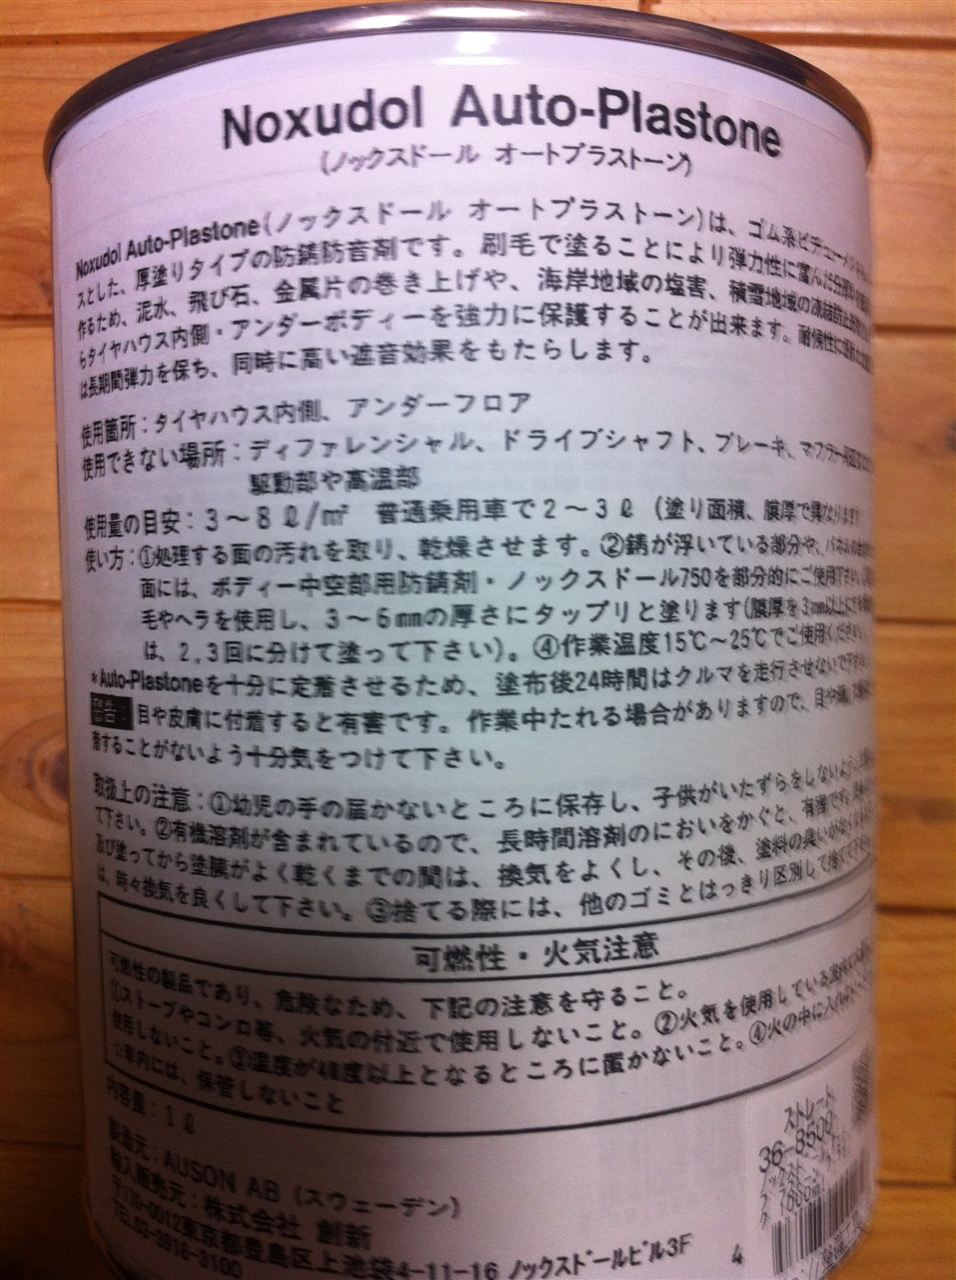 Noxudol Auto-Plastone
(ノックスドール オートプラストーン)
Noxudol Auto-Plastone(ノックスドール オートプラストーン)は、ゴム系ビチューメン
スとした、厚塗りタイプの防錆防音剤です。刷毛で塗ることにより弾力性に富んだ
作るため、泥水、飛び石、金属片の巻き上げや、海岸地域の塩害、積雪地域の凍結防止
らタイヤハウス内側・アンダーボディーを強力に保護することが出来ます。耐候性に
は長期間弾力を保ち、同時に高い遮音効果をもたらします。
使用箇所:タイヤハウス内側、アンダーフロア
使用できない場所:ディファレンシャル、ドライブシャフト、ブレーキ、マフラー
駆動部や高温部
使用量の目安:3〜8ℓ/㎡ 普通乗用車で2〜3ℓ (塗り面積、膜厚で異なります
使い方:①処理する面の汚れを取り、乾燥させます。②錆が浮いている部分や、パネルの
面には、ボディー中空部用防錆剤・ノックスドール750を部分的にご使用下さい。
毛やヘラを使用し、3〜6㎜の厚さにタップリと塗ります(膜厚を3㎜以上にする
は、2,3回に分けて塗って下さい)。④作業温度15℃〜25℃でご使用ください。
*Auto-Plastoneを十分に定着させるため、塗布後24時間はクルマを走行させないで下さい。
警告: 目や皮膚に付着すると有害です。作業中たれる場合がありますので、目や
着することがないよう十分気をつけて下さい。
取扱上の注意:①幼児の手の届かないところに保存し、子供がいたずらをしないように
て下さい。②有機溶剤が含まれているので、長時間溶剤のにおいをかぐと、有害です。
及び塗ってから塗膜がよく乾くまでの間は、換気をよくし、その後、塗料の臭いが
は、時々換気を良くして下さい。③捨てる際には、他のゴミとはっきり区別して捨てて下さい
可燃性・火気注意
可燃性の製品であり、危険なため、下記の注意を守ること。
①ストーブやコンロ等、火気の付近で使用しないこと。②火気を使用している
使用しないこと。③温度が40度以上となるところに置かないこと。④火の中に入れ
⑤車内には、保管しないこと
内容量:1ℓ
製造元:AUSON AB (スウェーデン)
輸入販売元:株式会社 創新
〒170-0012東京都豊島区上池袋4-11-16 ノックスドールビル3F
TEL.03-3918-3100
4
ストレート
36-8500